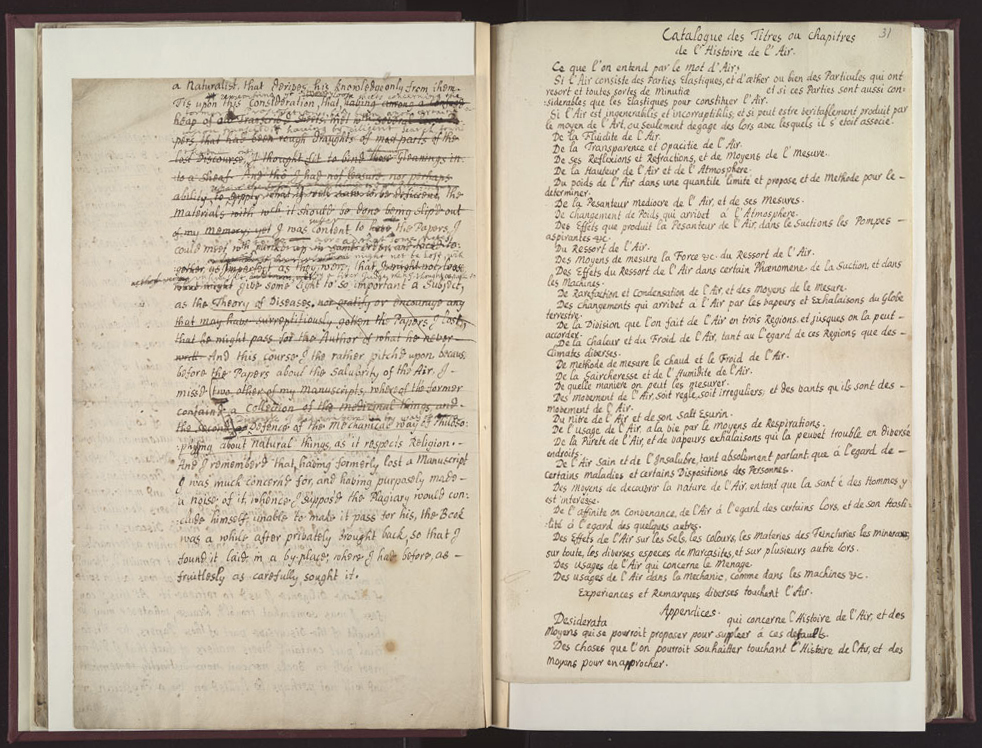 a Naturalist, that derives his knowledge only from them.
Tis upon this Consideration, that, having among a confus'd
heap of our Transcrib'd
pers, that had been rough Draughts of parts of the
last Discourse, I thought fit to bind these Gleanings in
to a sheaf. And tho I had not leasure, nor perhaps
ability, to supply
materials with wch it should be done being slip'd out
of my memory, yet I was content to the Papers, I
could meet wth
gether, as imperfect as they now, that, I might not loose
what might give some Light to so important a Subject,
as the Theory of Diseases, nor gratify or encourage any
that may have surreptitiously gotten the Papers I lost,
that he might pass for the Author of what he never
writ. And this course, I the rather pitch'd upon becaus
before the Papers about the Salubrity of the Air, I
miss'd two other of my Manuscripts, whereof the former
containd a Collection of the medicinal things and
the second a Defence of the Mechanical way of Philoso:
phizing about Natural things, as it respects Religion.
And I remember'd that, having formerly lost a Manuscript
I was much concern'd for, and having purposely made
a noise of it whence I suppos'd the Plagiary would con:
clude himself unable to make it pass for his, the Book
was a while after privately brought back, so that I
found it laid in a by-place, where I had before, as
fruitlesly as carefully, sought it.
31
Catalogue des Titres ou chapitres
de l'Histoire de l'Air.
Ce que l'on entend par le mot d'Air.
Si l'Air consiste des Parties Elastiques, et d'æther ou bien des Particules qui ont
resort et toutes sortes de Minutiæ et si ces Parties sont aussi con-
siderables que les Elastiques pour constituer l'Air.
Si l'Air est ingenerabilis et incorruptibilis, et si peut estre veritablement produit par
le moyen de l'Art, ou seulement degage des lors avec lesquels il s'etoit associe.
De la Fluidite de l'Air.
De la Transparence et Opacitie de l'Air.
De ses Reflexions et Refractions, et de Moyens de l'Mesure.
De la Hauteur de l'Air et de l'Atmosphere.
Du poids de l'Air dans une quantite limite et propose, et de Methode pour le
determiner.
De la Pesanteur mediocre de l'Air, et de ses Mesures.
De changement de Poids qui arribet a l'Atmosphere.
Des Effets que produit la Pesanteur de l'Air, dans le Suctions les Pompes
aspirantes &c.
Du Ressort de l'Air.
Des Moyens de mesure la Force &c. du Ressort de l'Air.
Des Effets du Ressort de l'Air dans certain Phænomene de la Suction, et dans
les Machines.
De Rarefaction et Condensation de l'Air, et des Moyens de le Mesure.
Des Changements qui arribet a l'Air par les bapeurs et Exhalaisons du Globe
terrestre.
De la Division que l'on fait de l'Air en trois Regions, et jusques on la peut
accorder.
De la Chaleur et du Froid de l'Air, tant au l'egard de ces Regions que des
Climates diverses.
De Methode de mesure le chaud et le Froid de l'Air.
De la Saircheresse et de l'Humidite de l'Air.
De quelle maniere on peut les mesurer.
Des mobement de l'Air, soit regle, soit irreguliers; et des bants qu'ils sont des
mobement de l'Air.
Du nitre de l'Air et de son Salt Esurin.
De l'usage de l'Air, a la bie par le moyens de Respirations.
De la Purete de l'Air, et de bapeurs exhalaisons qui la peubet trouble en diberse
endroits.
De l'Air Sain et de l'Insalubre, tant absolument parlant, que a l'egard de
certains maladies et certains Dispositions des Personnes.
Des Moyens de decoubrir la nature de l'Air, entant que la Sant é des Hommes, y
est interesse.
De l'affinite on Convenance, de l'Air á l'egard des certains Lors, et de son Hosti-
lité á l'egard des quelques autres.
Des Effets de l'Air sur les Sels, les Colours, les Materies des Teinctures les mineraux,
sur toute, les diverses especes de Marcasites, et sur plusieurs autre lors.
Des Usages de l'Air qui concerne le Menage.
Des Usages de l'Air dans la Mechanic, comme dans les Machines &c.
Experiences et Remarques diverses touchant l'Air.
Appendices.
Desiderata qui concerne l'Histoire de l'Air, et des
Moyens qui se pourroit proposer pour suppleer á ces defaults.
Des choses que l'on pourroit souhaitter touchant l'Histoire de l'Air, et des
Moyens pour en approcher.